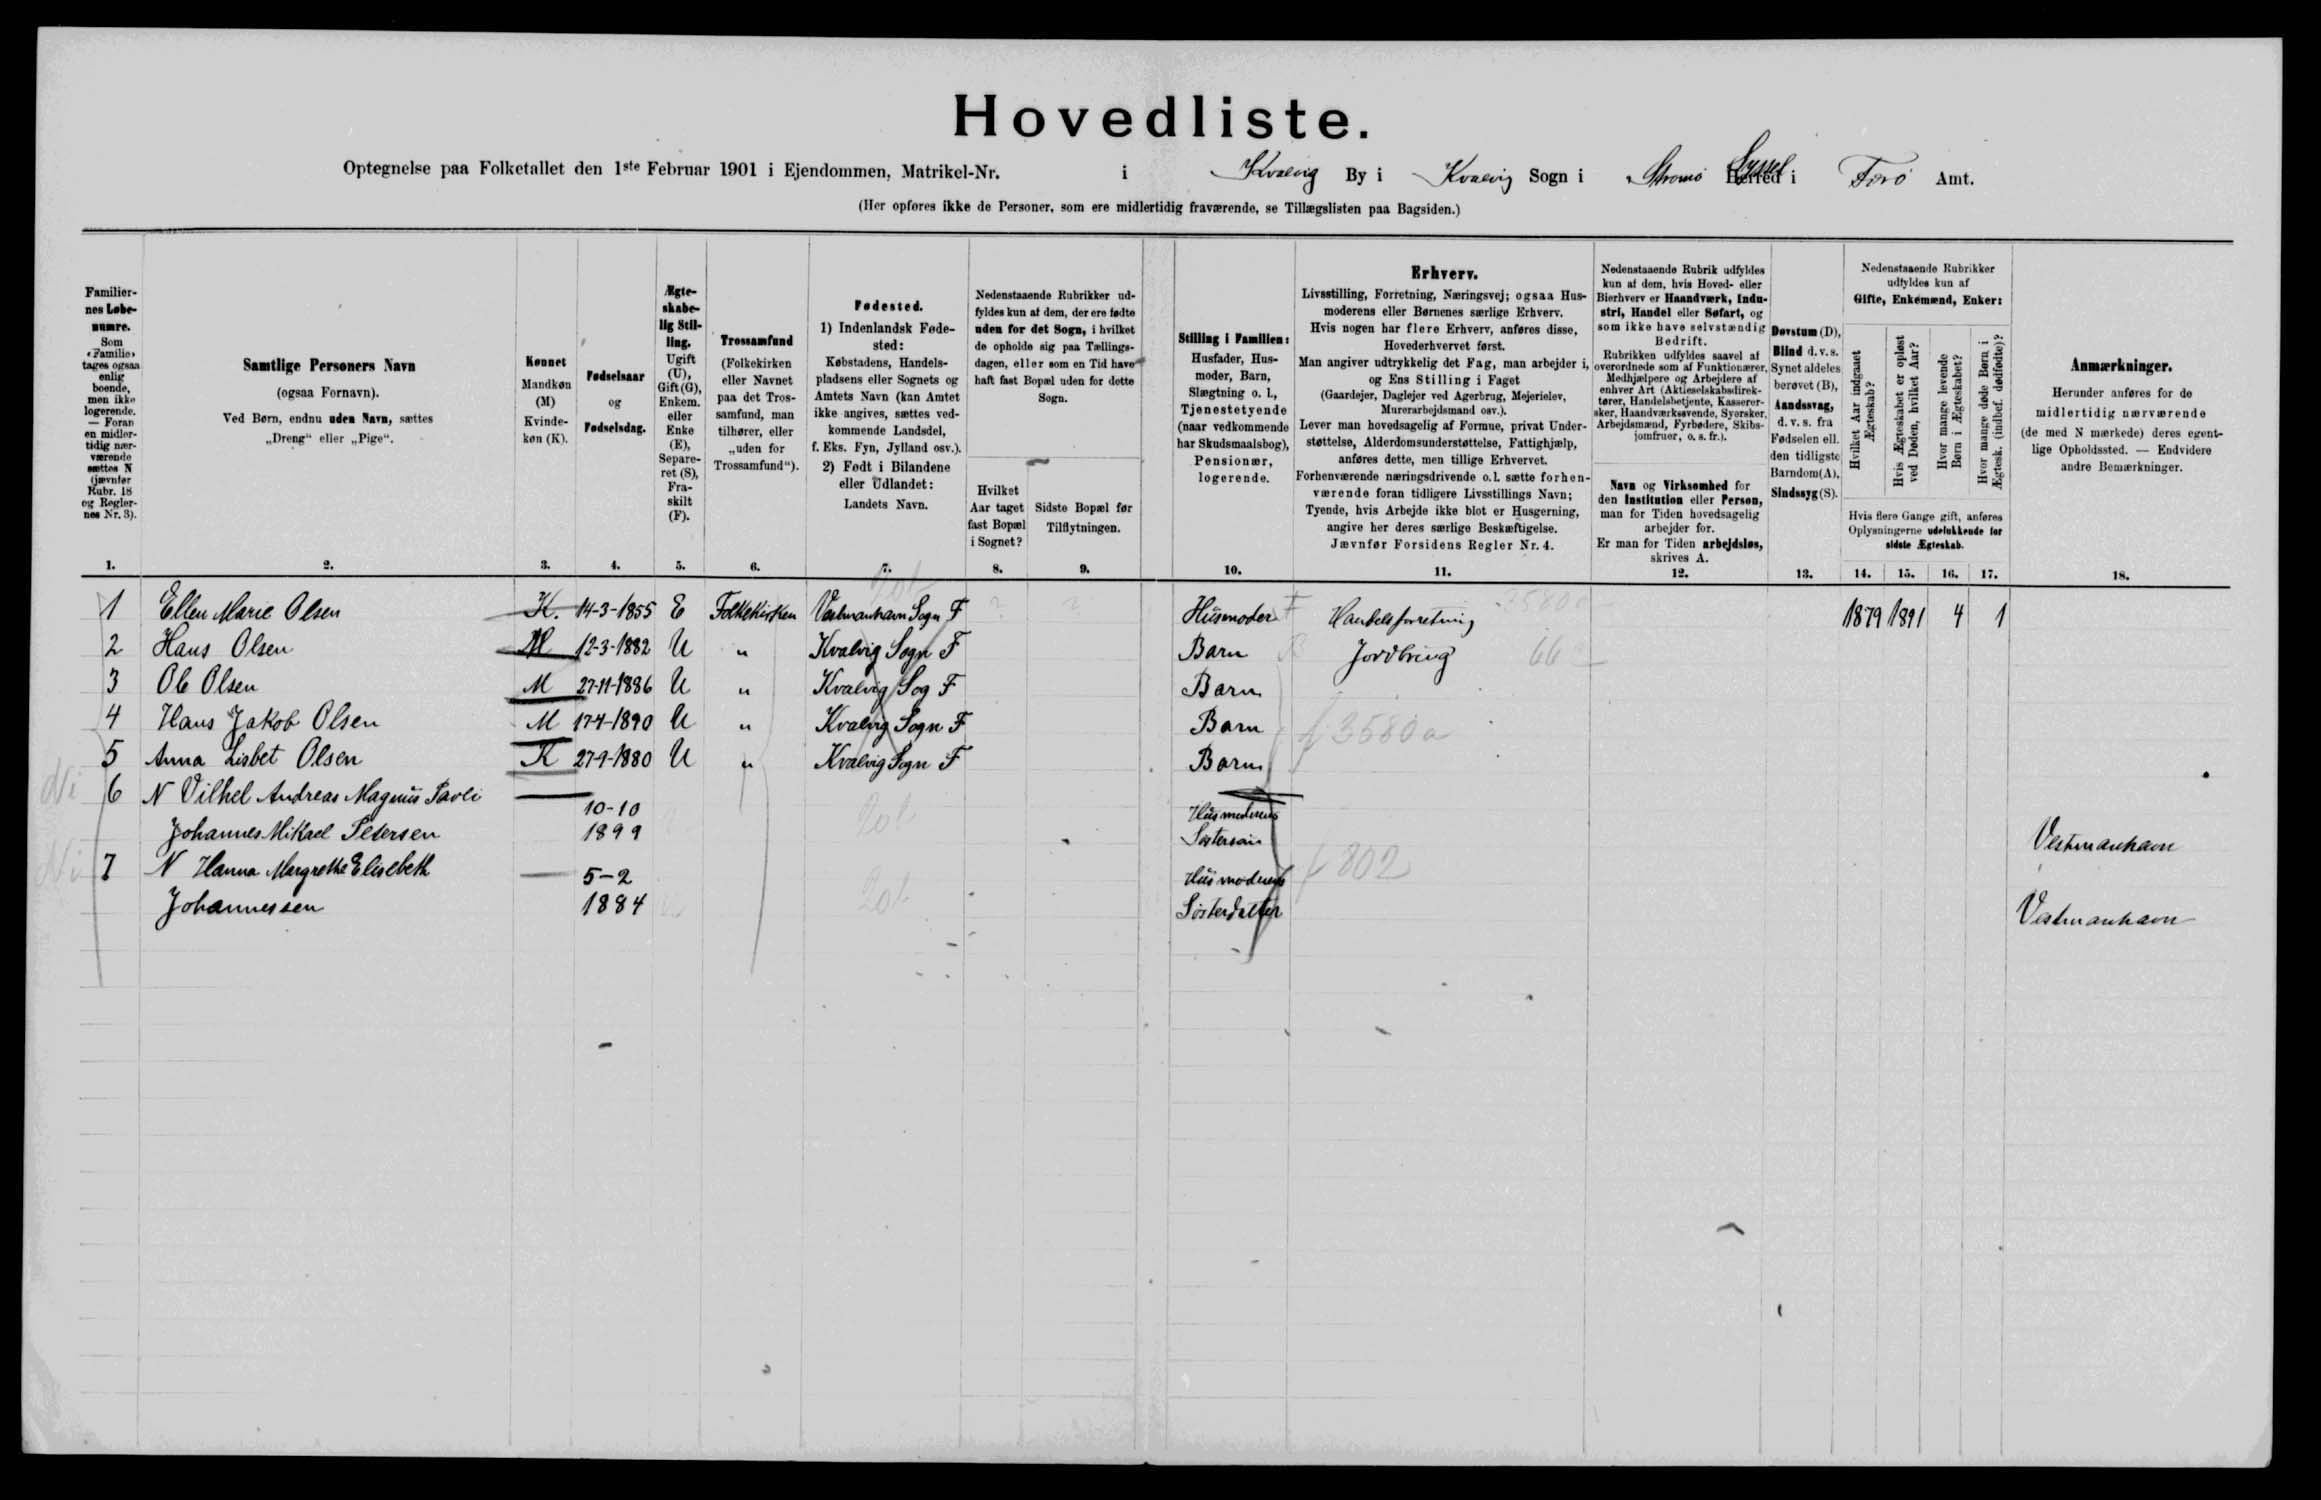 Hovedliste.
Optegnelse paa Folketallet den 1ste Februar 1901 i Ejendommen, Matrikel-Nr. i Kvalvig By i Kvalvig Sogn i Strømø Herred Syssel i Færø Amt.
(Her opføres ikke de Personer, som ere midlertidig fraværende, se Tillægslisten paa Bagsiden.)
Familier-
nes Løbe-
numre.
Som
«Familie»
tages ogsaa
enlig
boende,
men ikke
logerende.
— Foran
en midler-
tidig nær-
værende
sættes N
(jævnfør
Rubr. 18
og Regler-
nes Nr. 3).
1.
Samtlige Personers Navn
(ogsaa Fornavn).
Ved Børn, endnu uden Navn, sættes
„Dreng“ eller „Pige“.
2.
Kønnet
Mandkøn
(M)
Kvinde-
køn (K).
3.
Fødselsaar
og
Fødselsdag.
4.
Ægte-
skabe-
lig Stil-
ling.
Ugift
(U),
Gift (G),
Enkem.
eller
Enke
(E),
Separe-
ret (S),
Fra-
skilt
(F).
5.
Trossamfund
(Folkekirken
eller Navnet
paa det Tros-
samfund, man
tilhører, eller
„uden for
Trossamfund“).
6.
Fødested.
1) Indenlandsk Føde-
sted:
Købstadens, Handels-
pladsens eller Sognets og
Amtets Navn (kan Amtet
ikke angives, sættes ved-
kommende Landsdel,
f. Eks. Fyn, Jylland osv.).
2) Født i Bilandene
eller Udlandet:
Landets Navn.
7.
Nedenstaaende Rubrikker ud-
fyldes kun af dem, der ere fødte
uden for det Sogn, i hvilket
de opholde sig paa Tællings-
dagen, eller som en Tid have
haft fast Bopæl uden for dette
Sogn.
Hvilket
Aar taget
fast Bopæl
i Sognet?
8.
Sidste Bopæl før
Tilflytningen.
9.
Stilling i Familien:
Husfader, Hus-
moder, Barn,
Slægtning o. l.,
Tjenestetyende
(naar vedkommende
har Skudsmaalsbog),
Pensionær,
logerende.
10.
Erhverv.
Livsstilling, Forretning, Næringsvej; ogsaa Hus-
moderens eller Børnenes særlige Erhverv.
Hvis nogen har flere Erhverv, anføres disse,
Hovederhvervet først.
Man angiver udtrykkelig det Fag, man arbejder i,
og Ens Stilling i Faget
(Gaardejer, Daglejer ved Agerbrug, Mejerielev,
Murerarbejdsmand osv.).
Lever man hovedsagelig af Formue, privat Under-
støttelse, Alderdomsunderstøttelse, Fattighjælp,
anføres dette, men tillige Erhvervet.
Forhenværende næringsdrivende o.l. sætte forhen-
værende foran tidligere Livsstillings Navn;
Tyende, hvis Arbejde ikke blot er Husgerning,
angive her deres særlige Beskæftigelse.
Jævnfør Forsidens Regler Nr. 4.
11.
Nedenstaaende Rubrik udfyldes
kun af dem, hvis Hoved- eller
Bierhverv er Haandværk, Indu-
stri, Handel eller Søfart, og
som ikke have selvstændig
Bedrift.
Rubrikken udfyldes saavel af
overordnede som af Funktionærer,
Medhjælpere og Arbejdere af
enhver Art (Aktieselskabsdirek-
tører, Handelsbetjente, Kasserer-
sker, Haandværkssvende, Syersker,
Arbejdsmænd, Fyrbødere, Skibs-
jomfruer, o. s. fr.).
Navn og Virksomhed for
den Institution eller Person,
man for Tiden hovedsagelig
arbejder for.
Er man for Tiden arbejdsløs,
skrives A.
12.
Døvstum (D),
Blind d. v. s.
Synet aldeles
berøvet (B),
Aandssvag,
d. v. s. fra
Fødselen ell.
den tidligste
Barndom (A),
Sindssyg (S).
13.
Nedenstaaende Rubrikker
udfyldes kun af
Gifte, Enkemænd, Enker:
Hvilket Aar indgaaet
Ægteskab?
Hvis Ægteskabet er opløst
ved Døden, hvilket Aar?
Hvor mange levende
Børn i Ægteskabet?
Hvor mange døde Børn i
Ægtesk. (indbef. dødfødte)?
Hvis flere Gange gift, anføres
Oplysningerne udelukkende for
sidste Ægteskab.
14. 15. 16. 17.
Anmærkninger.
Herunder anføres for de
midlertidig nærværende
(de med N mærkede) deres egent-
lige Opholdssted. — Endvidere
andre Bemærkninger.
18.
201
1 Ellen Marie Olsen K. 14-3-1855 E Folkekirken Vestmanhavn Sogn F ? ? Husmoder F Handelsforretning 3580a 1879 1891 4 1
2 Hans Olsen M 12-3-1882 U " Kvalvig Sogn F Barn B Jordbrug 66
3 Ole Olsen M 27-11-1886 U " Kvalvig Sog F Barn
4 Hans Jakob Olsen M 17-4-1890 U " Kvalvig Sogn F Barn f 3580a
5 Anna Lisbet Olsen K 27-9-1880 U " Kvalvig Sogn F Barn
Ni 6 N Vilhel Andreas Magnus Pavli 10-10 Husmoderens
Johannes Mikael Petersen 1899 201 Søstersøn Vestmanhavn
Ni 7 N Hanna Margrethe Elisebeth 5-2 Husmoderens f 802
Johannessen 1884 201 Søsterdatter Vestmanhavn